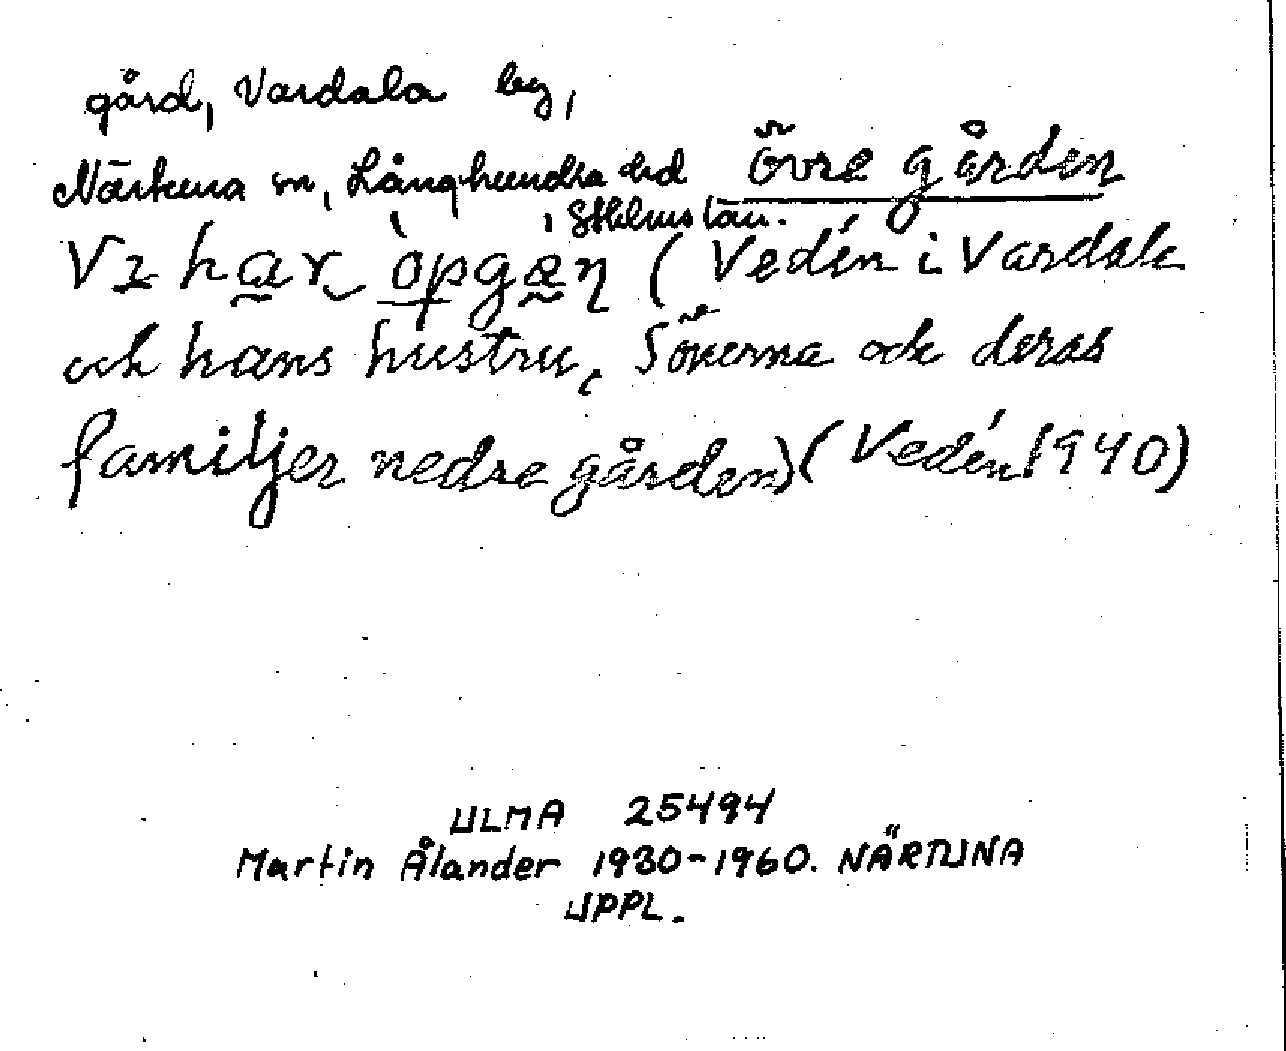 gård, Vardala by,
Närtuna sn, Långhundra hd övre gården
, Sthlms län.
Vɪ har òpgæn (Vedén i Vardala
och hans hustru, Sönerna och deras
familjer nedre gården) (Vedén 1940)
ULMA 25494
Martin Ålander 1930-1960. NÄRTUNA
UPPL.